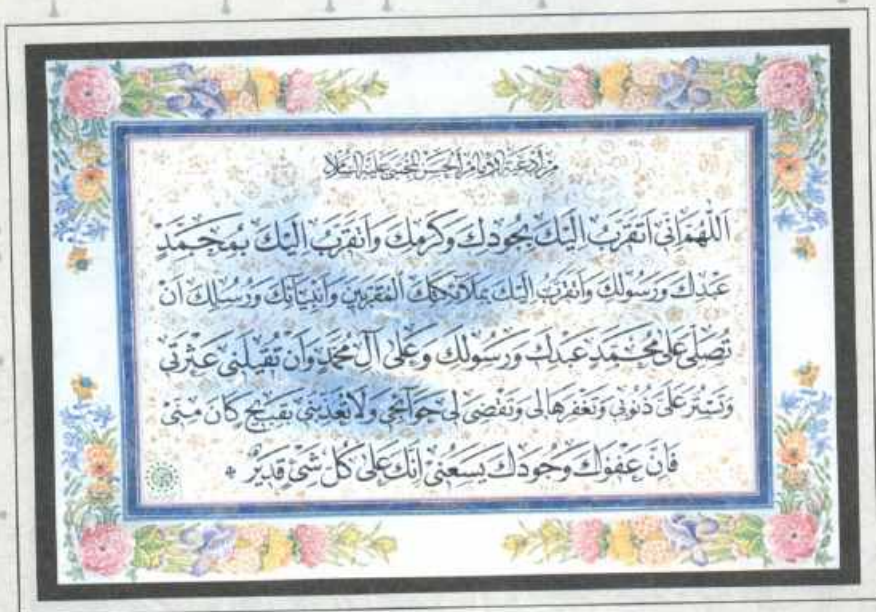 من أدعية الإمام الحسن المجتبى عليه السلام
اَللّٰهُمَّ اِنّى اَتَقَرَّبُ اِلَيْكَ بِجُودِكَ وَكَرَمِكَ وَاَتَقَرَّبُ اِلَيْكَ بِمُحَمَّدٍ
عَبْدِكَ وَرَسُولِكَ وَاَتَقَرَّبُ اِلَيْكَ بِمَلَائِكَتِكَ الْمُقَرَّبِينَ وَاَنْبِيَائِكَ وَرُسُلِكَ اَنْ
تُصَلِّىَ عَلىٰ مُحَمَّدٍ عَبْدِكَ وَرَسُولِكَ وَعَلىٰ آلِ مُحَمَّدٍ وَاَنْ تُقيلَنى عَثْرَتى
وَتَسْتُرَ عَلَىَّ ذُنُوبى وَتَغْفِرَهَا لى وَتَقْضِىَ لى حَوَائِجى وَلَا تُعَذِّبَنى بِقَبيحٍ كَانَ مِنّى
فَاِنَّ عَفْوَكَ وَجُودَكَ يَسَعُنى اِنَّكَ عَلىٰ كُلِّ شَىْءٍ قَديرٌ